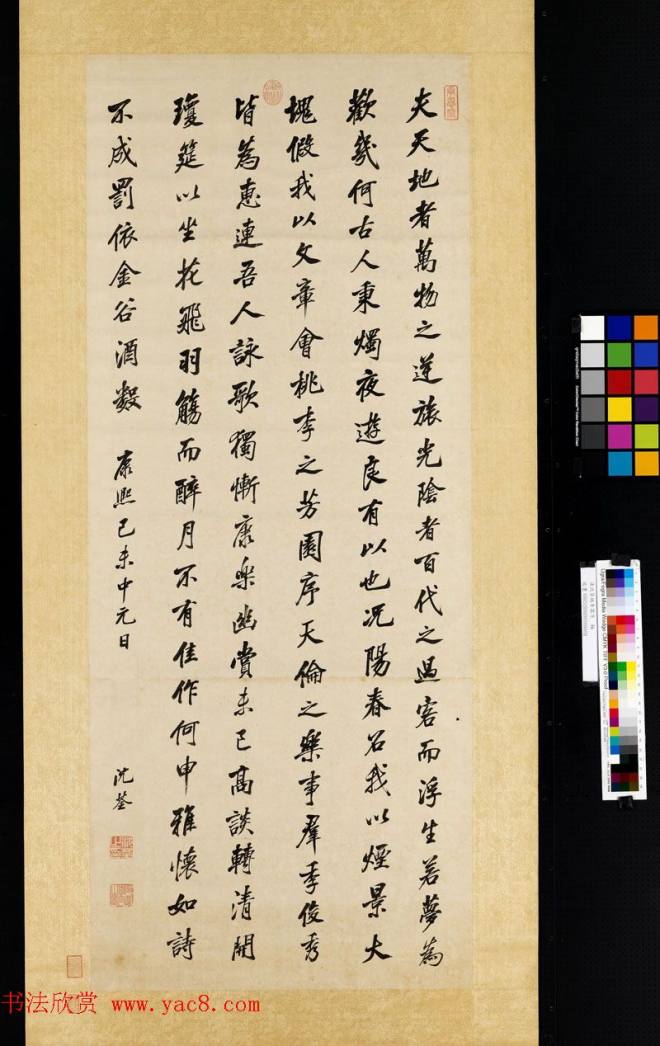 夫天地者萬物之逆旅光陰者百代之過客而浮生若夢為
歡幾何古人秉燭夜遊良有以也況陽春召我以煙景大
塊假我以文章會桃李之芳園序天倫之樂事羣季俊秀
皆為惠連吾人詠歌獨慚康樂幽賞未已高談轉清開
瓊筵以坐花飛羽觴而醉月不有佳作何申雅懷如詩
不成罰依金谷酒數 康熙己未中元日
沈荃
书法欣赏 www.yac8.com